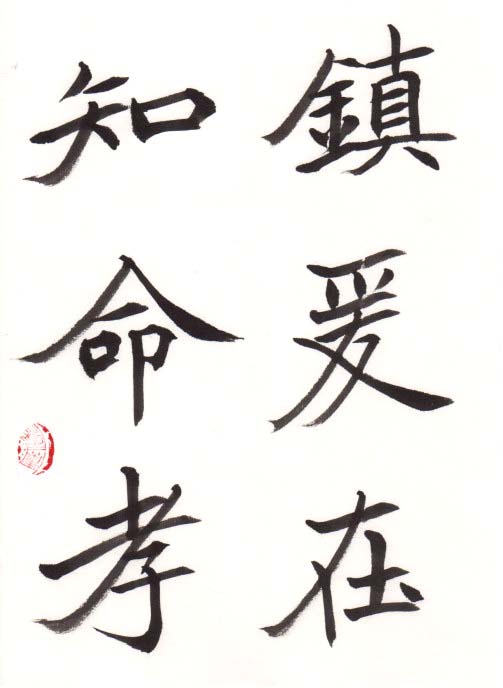 鎮爰在
知命孝